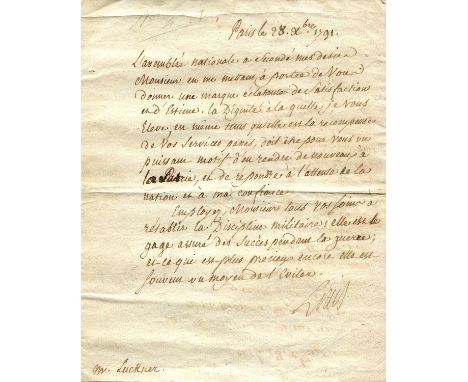 Paris le 28. Xbre 1791.
L'assemblée nationale a secondé mes desirs
Monsieur en me mettant à portée de Vous
donner une marque éclatante de Satisfaction
et d'Estime. la Dignité à la quelle je vous
Eleve en même tems qu'elle est la recompense
de Vos Services passés, doit être pour vous un
puissant motif d'en rendre de nouveaux à
la Patrie, et de repondre à l'attente de la
nation et à ma confiance.
Employez, Monsieur tous vos soins à
rétablir la Discipline militaire; elle est le
gage assuré des Succès pendant la guerre;
et ce qui est plus precieux encore elle est
souvent un moyen de l'Eviter.
Louis
Mr. Luckner.